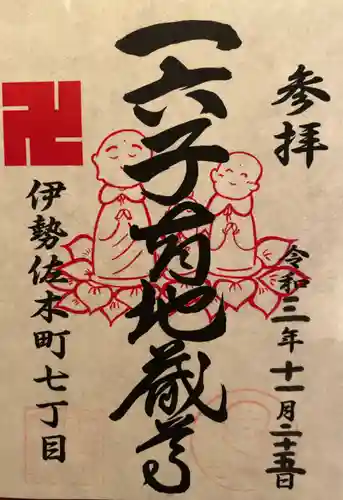 参拝
一六子育地蔵尊
令和三年十一月二十五日
卍
伊勢佐木町七丁目